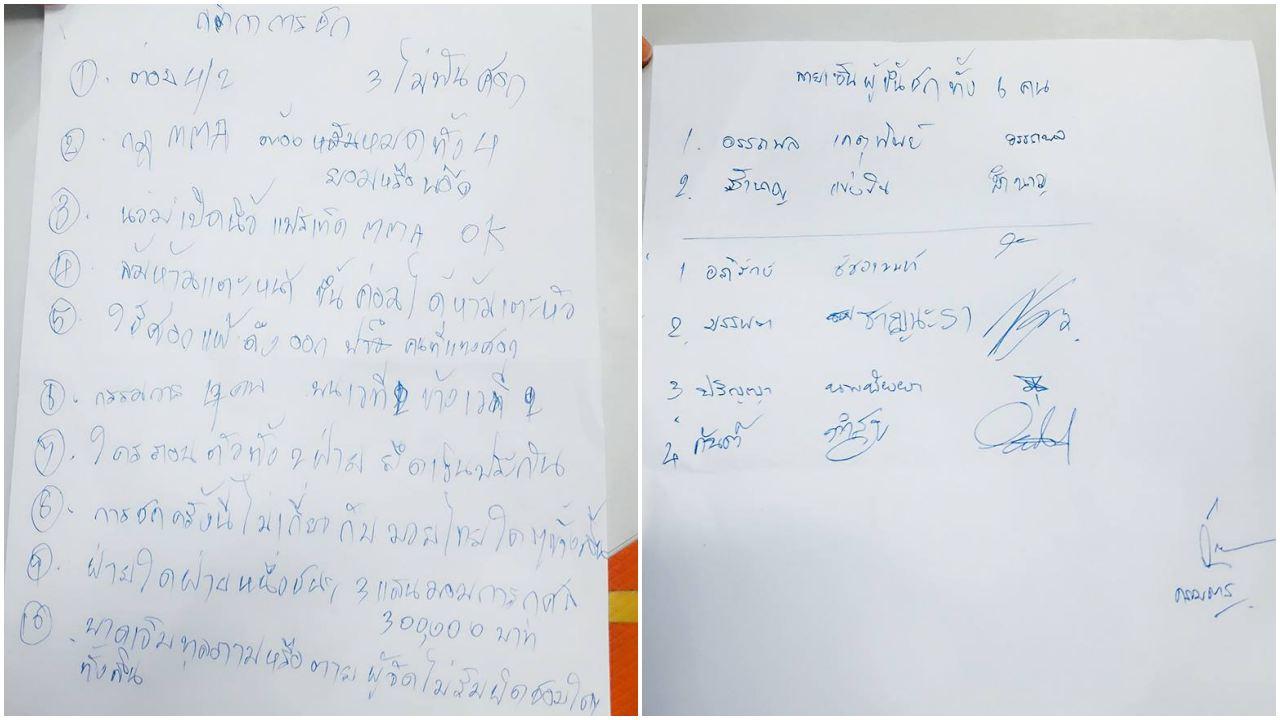 กติกาการชก
① ต่อย 4/2 3 ไม่ฟันศอก
②. กฎ MMA ต้อง หมดทั้ง 4
ยอมหรือน็อค
③. นวมเปิดนิ้ว MMA OK
④. ล้มห้ามเตะหน้า ขึ้นค่อมได้ห้ามเตะหัว
⑤. ใช้ศอกแพ้ ดึงออก ปรับ คนที่แทงศอก
⑥. กรรมการ คน บนเวที 2 ข้างเวที 2
⑦. ใครถอนตัวทั้ง 2 ฝ่าย ยึดเงินประกัน
⑧. การชกครั้งนี้ไม่เกี่ยวกับมวยไทยใดๆทั้งสิ้น
⑨. ฝ่ายใดฝ่ายหนึ่งชนะ 3 แสนมอบการกุศล
300,000 บาท
⑩. บาดเจ็บทุพลภาพหรือตาย ผู้จัดไม่รับผิดชอบใดๆ
ทั้งสิ้น
ลายเซ็นผู้ขึ้นชกทั้ง 6 คน
1. อรรถพล เกตุทิพย์ อรรถพล
2. ชำนาญ ชำนาญ
1 อภิรักษ์
2. บรรพต ชาญนะรา
3 ปริญญา
4 กันต์
กรรมการ